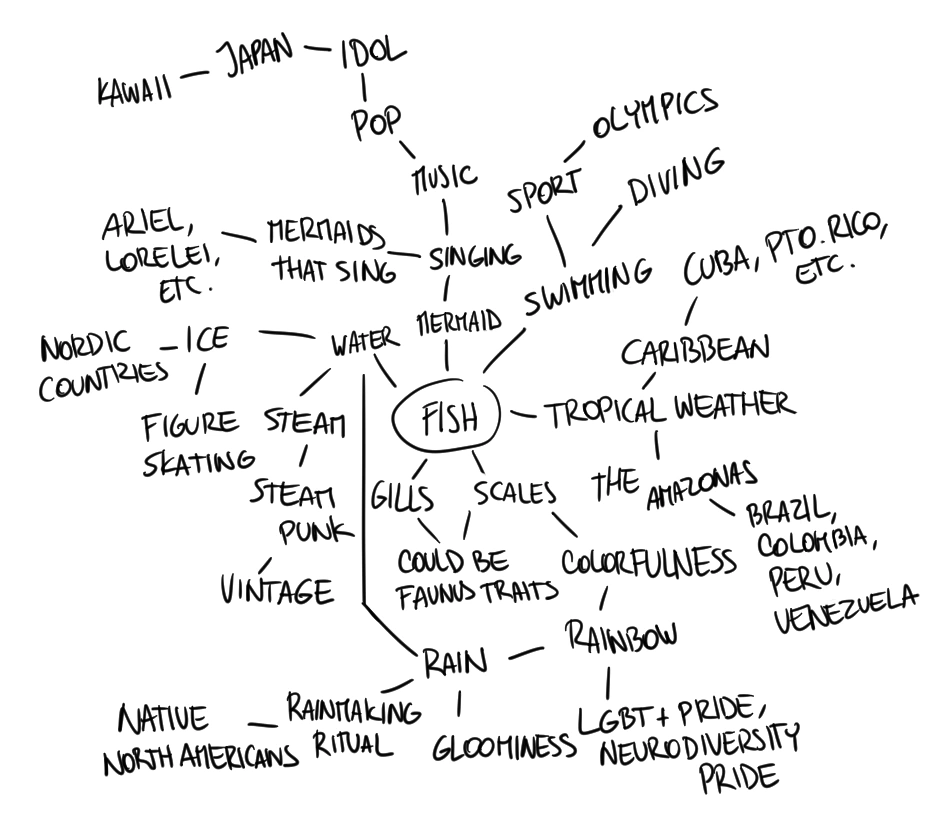 KAWAII
JAPAN
IDOL
POP
MUSIC
OLYMPICS
SPORT
DIVING
ARIEL,
LORELEI,
ETC.
MERMAIDS
THAT SING
SINGING
SWIMMING
CUBA, PTO. RICO,
ETC.
NORDIC
COUNTRIES
ICE
WATER
MERMAID
CARIBBEAN
FIGURE
SKATING
STEAM
FISH
TROPICAL WEATHER
STEAM
PUNK
VINTAGE
GILLS
SCALES
THE AMAZONAS
BRAZIL,
COLOMBIA,
PERU,
VENEZUELA
COULD BE
FAUNUS TRAITS
COLORFULNESS
RAIN
RAINBOW
NATIVE
NORTH AMERICANS
RAINMAKING
RITUAL
GLOOMINESS
LGBT+ PRIDE,
NEURODIVERSITY
PRIDE